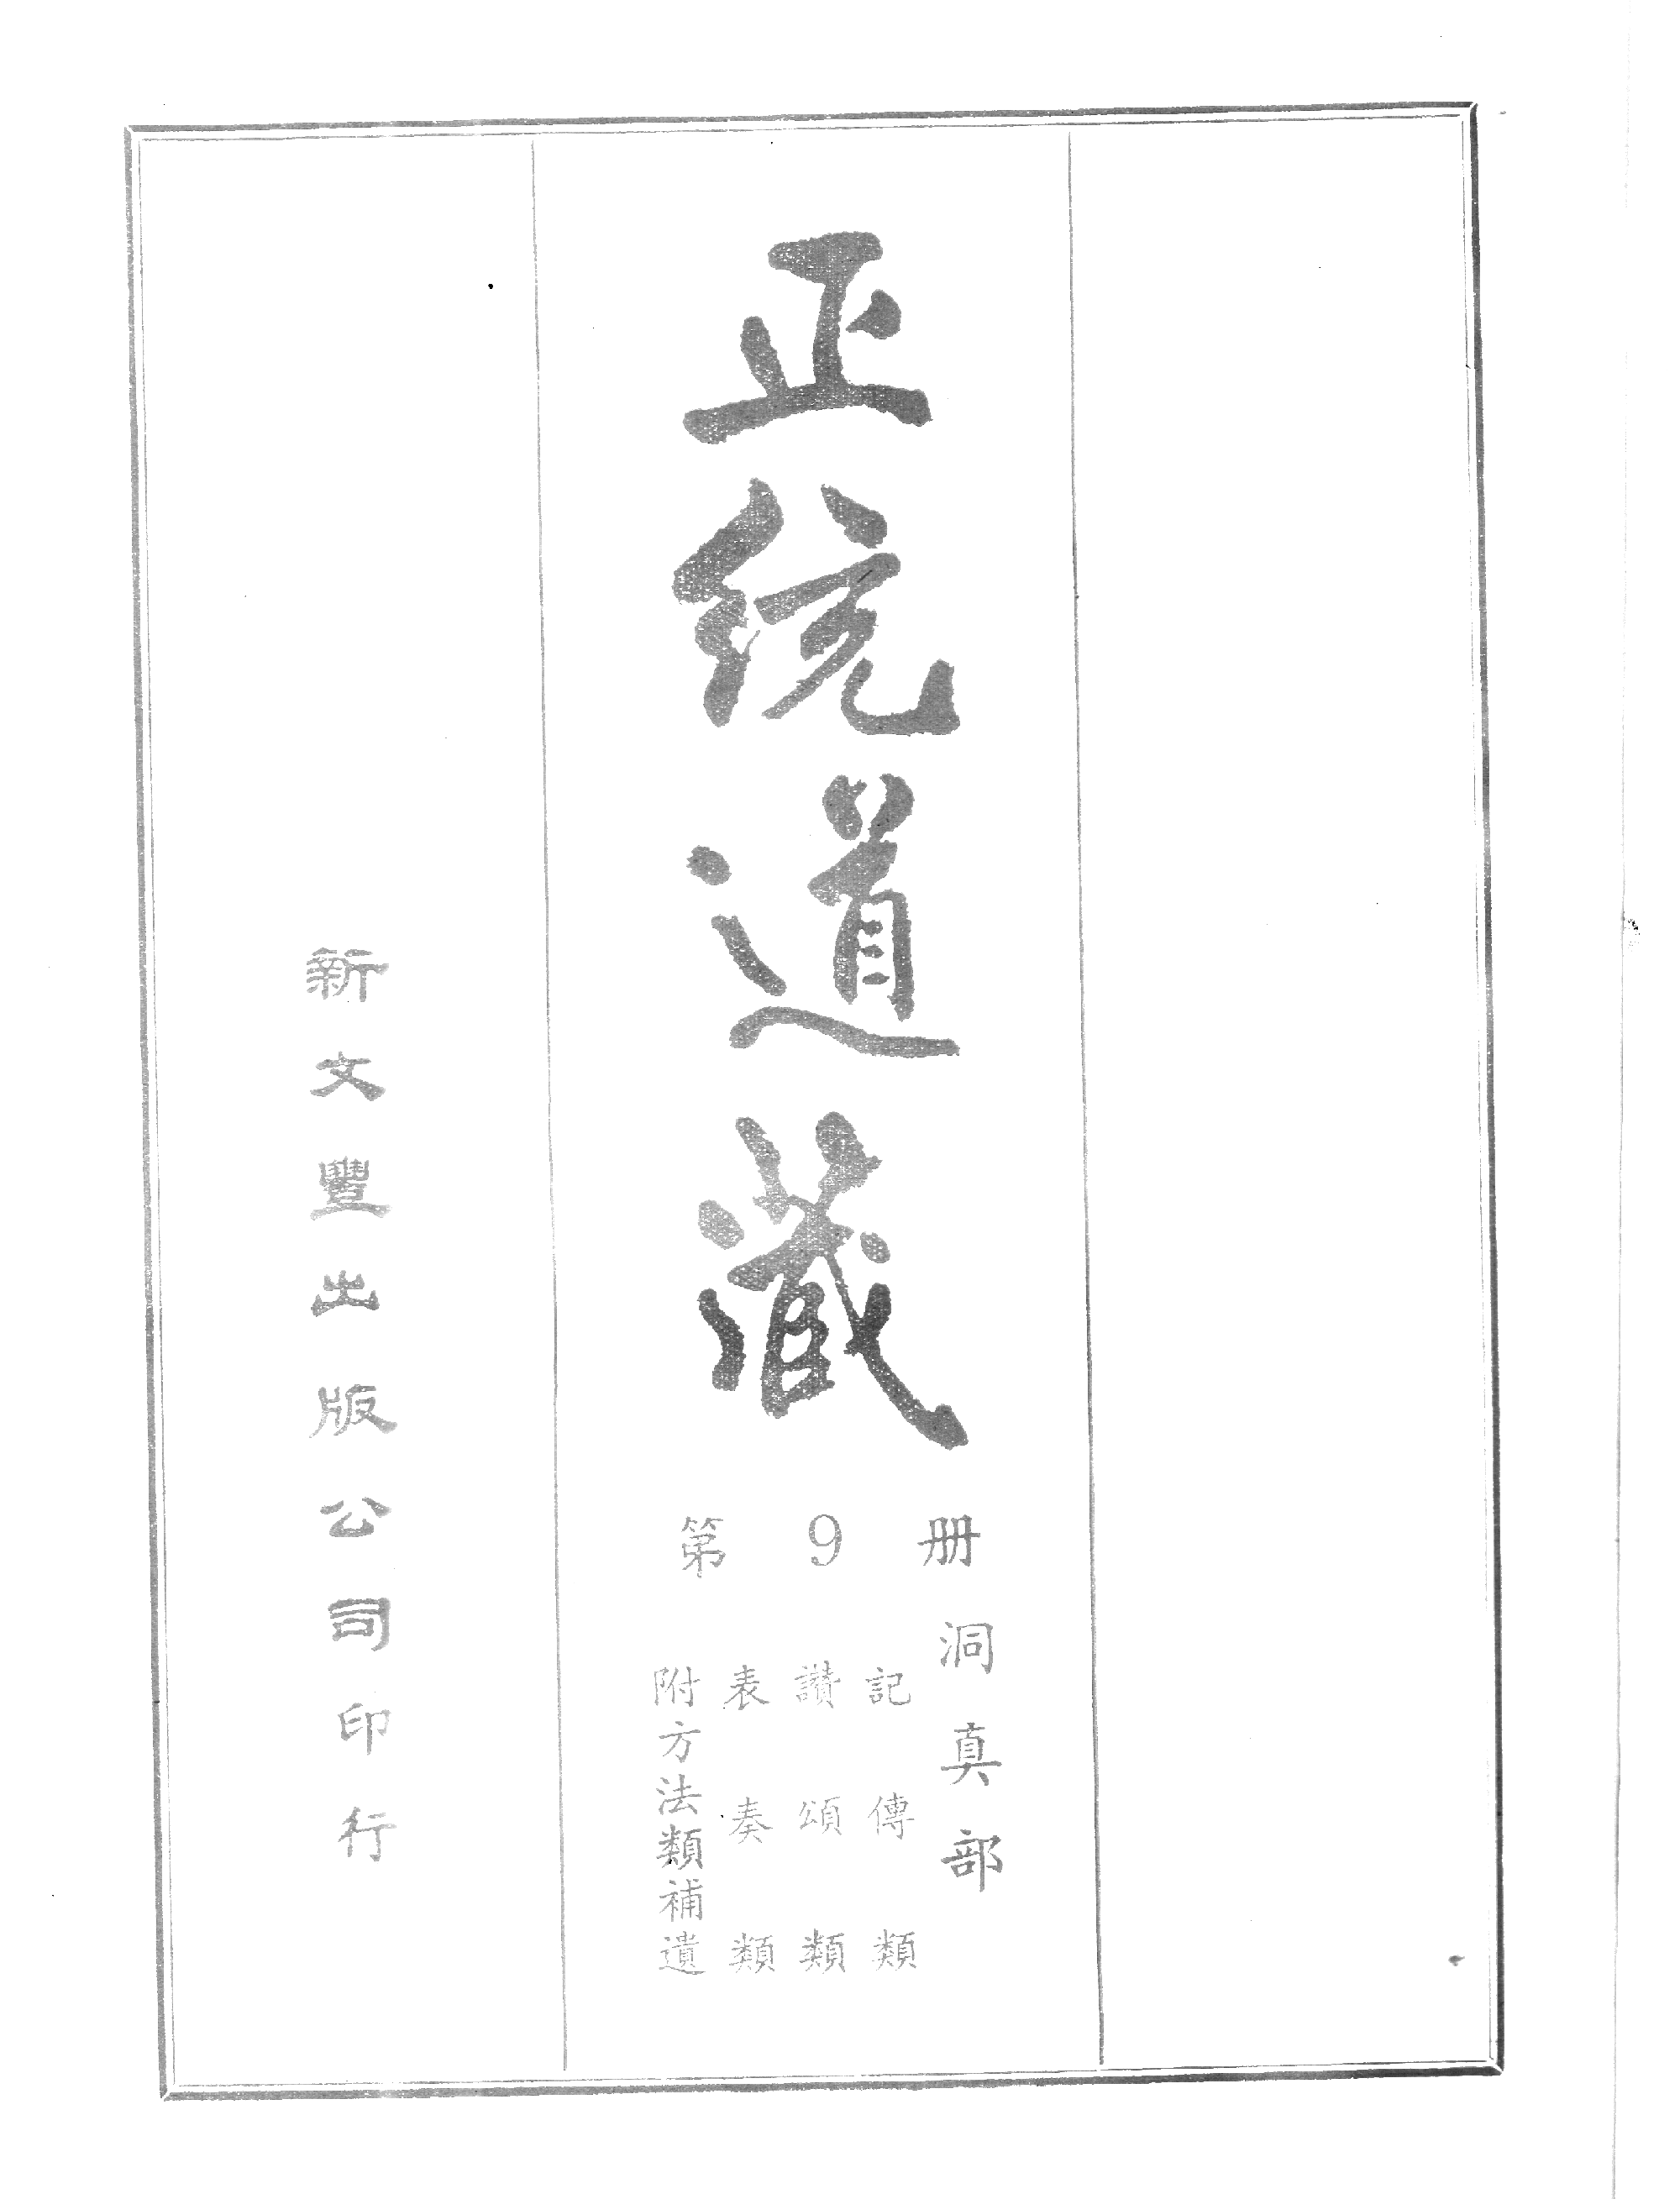 正統道藏
第9册
洞真部
記傳類
讚頌類
表奏類
附方法類補遺
新文豐出版公司印行